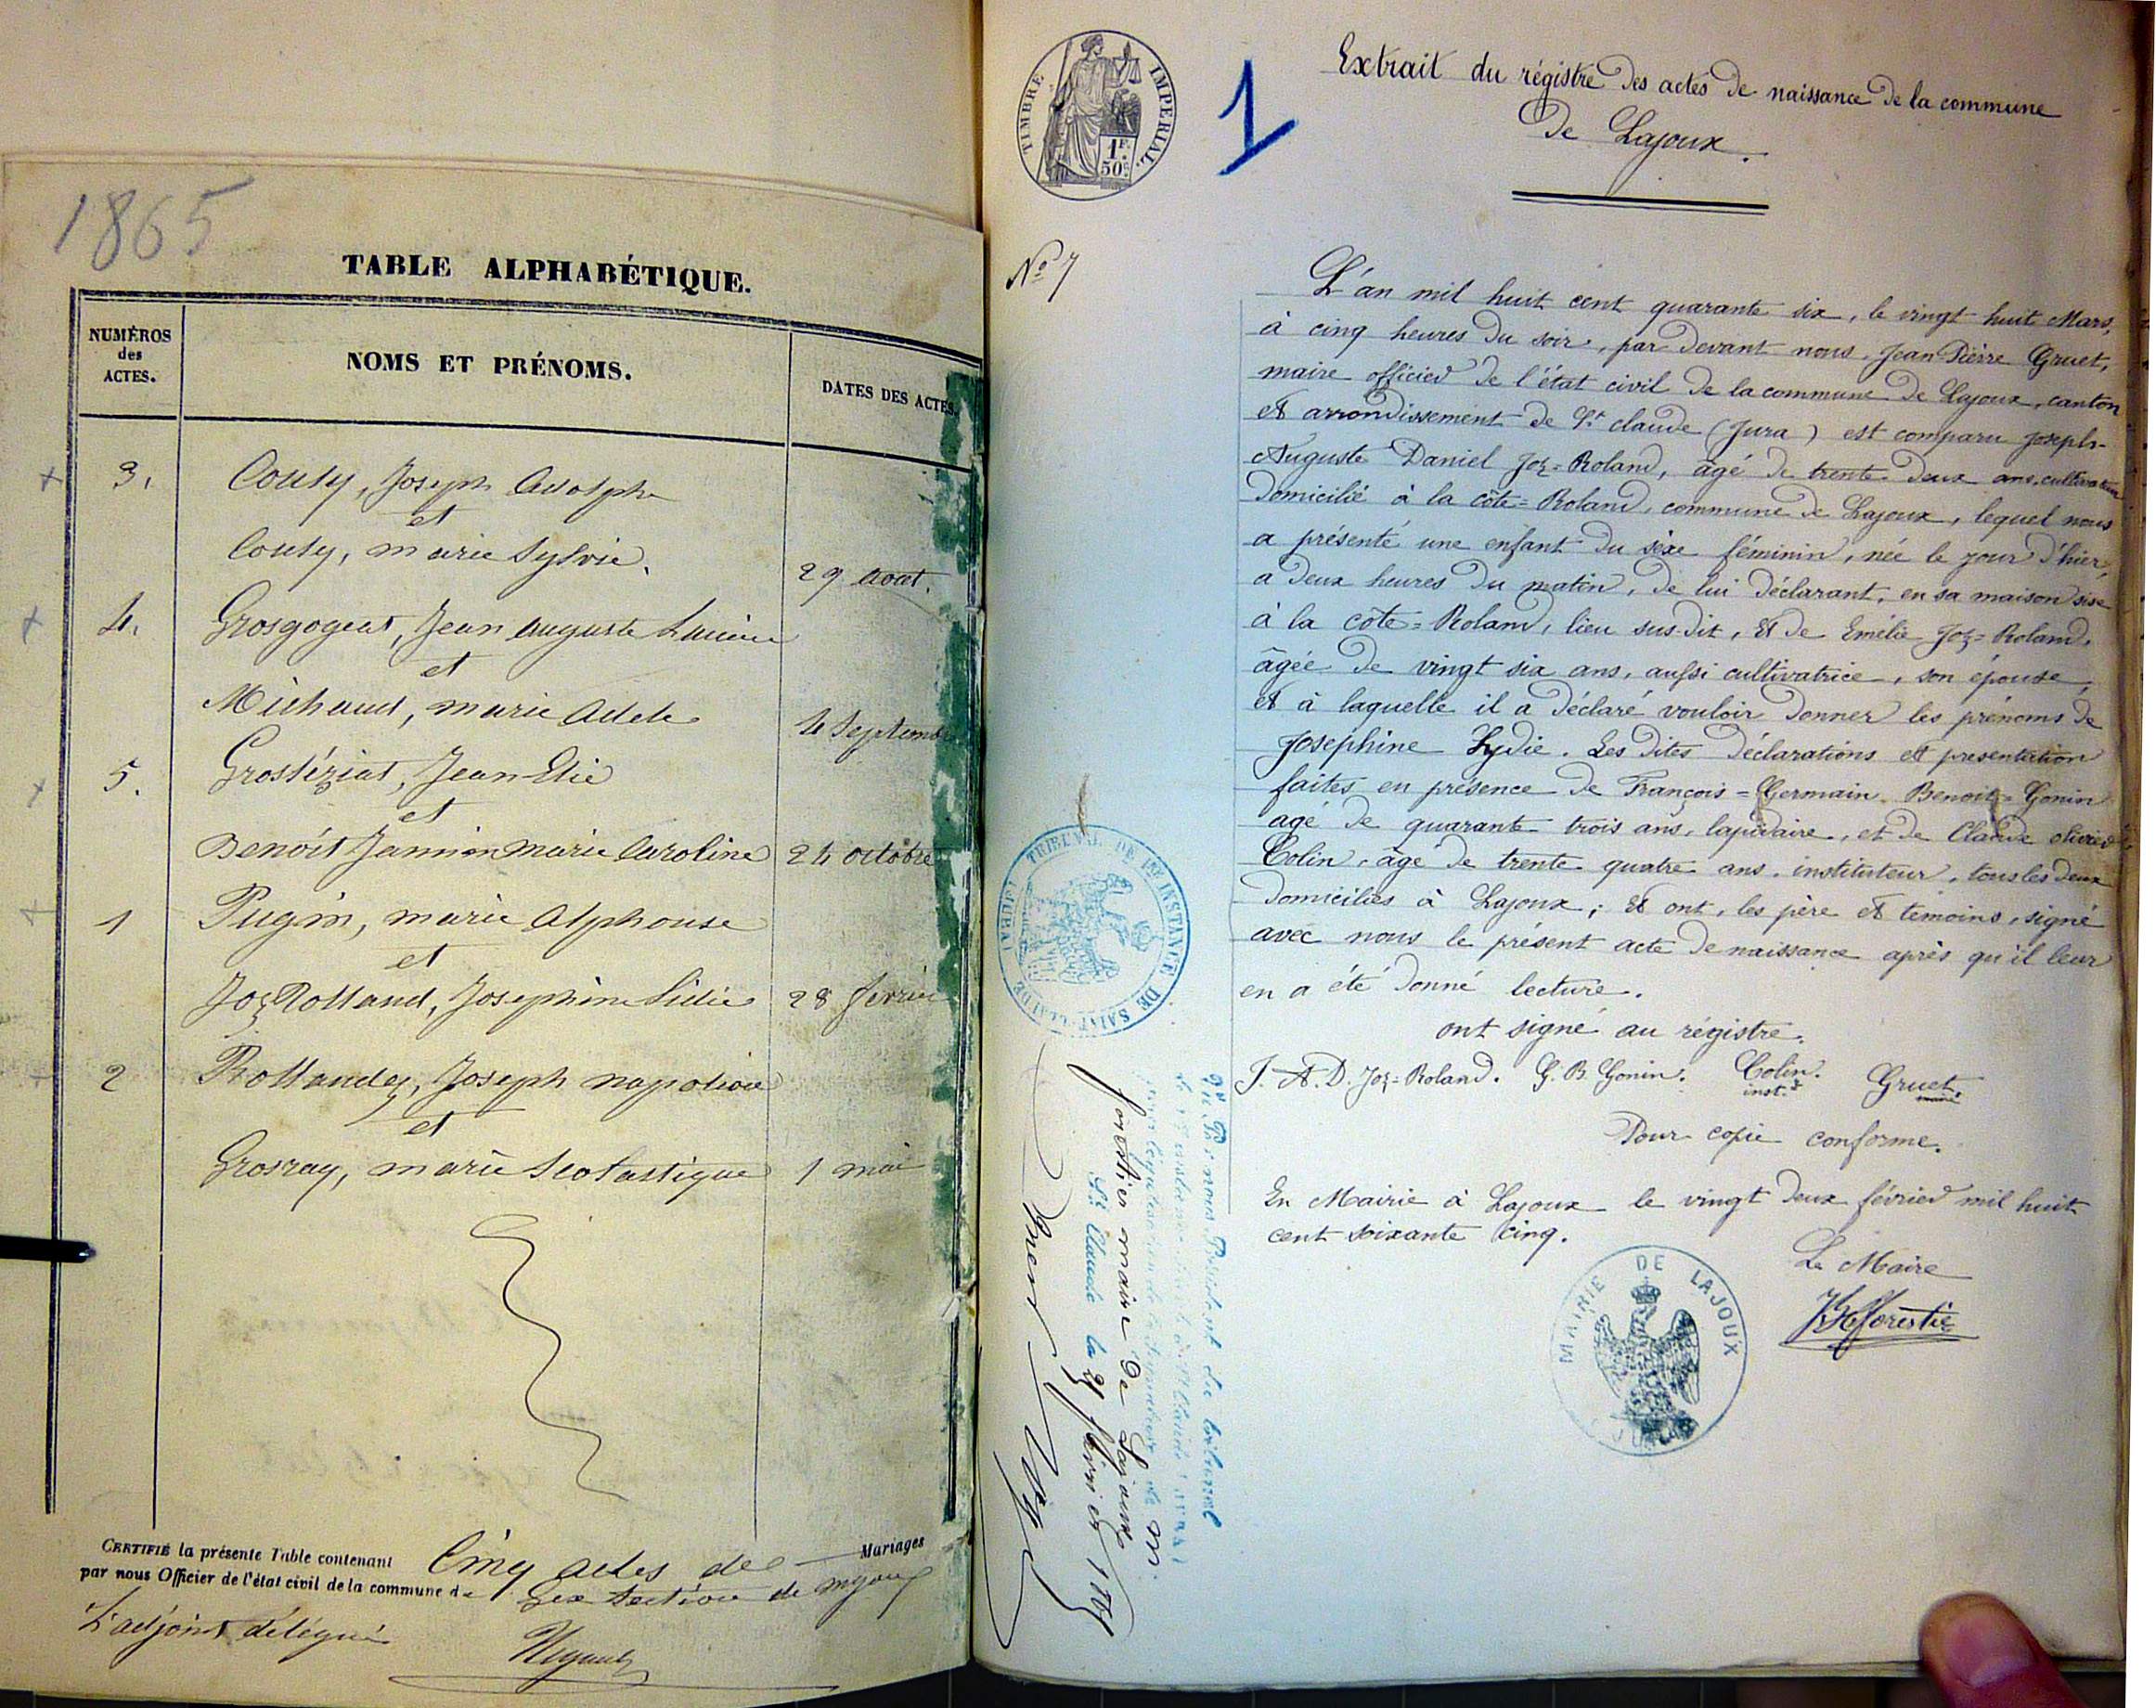 1865
TABLE ALPHABÉTIQUE.
NUMÉROS
des
ACTES.
NOMS ET PRÉNOMS.
DATES DES ACTES.
3. Couty, Joseph Adolphe
et
Couty, marie Sylvie. 29 aout.
4. Grosgogeat, Jean Auguste Lucien
et
Michaud, marie Adele 4 Septembre
5. Grostéziat, Jean Elie
et
Benoit Jannin marie Caroline 24 octobre
1 Pugin, marie Alphonse
et
Joz Rolland, Josephine Lidie 28 fevrier
2 Rollandez, Joseph napoleon
et
Grosray, marie Scolastique 1 mai
CERTIFIÉ la présente Table contenant Cinq actes de Mariages
par nous Officier de l'état civil de la commune de Section de
L'adjoint délégué
TIMBRE IMPÉRIAL.
1F.
50c.
1
Extrait du régistre des actes de naissance de la commune
de Lajoux.
No 7
L'an mil huit cent quarante six, le vingt huit Mars,
à cinq heures du soir, par devant nous, Jean Pièrre Gruet,
maire officier de l'état civil de la commune de Lajoux, canton
et arrondissement de St claude (Jura) est comparu Joseph-
Auguste Daniel Joz=Roland, âgé de trente deux ans, cultivateur
domicilié à la côte=Roland, commune de Lajoux, lequel nous
a présenté une enfant du sèxe féminin, née le jour d'hier,
a deux heures du matin, de lui déclarant, en sa maison sise
à la côte=Roland, lieu sus-dit, et de Emélie Joz=Roland,
âgée de vingt six ans, aussi cultivatrice, son épouse,
et à laquelle il a déclaré vouloir donner les prénoms de
Joséphine Lydie. Les dites déclarations et presentation
faites en présence de François=Germain Benoit=Gonin
agé de quarante trois ans, lapidaire, et de Claude olivier
Colin, âgé de trente quatre ans, instituteur, tous les deux
domiciliés à Lajoux; et ont, les père et témoins, signé
avec nous le présent acte de naissance après qu'il leur
en a été donné lecture.
ont signé au régistre.
J. A. D. Joz=Roland. G. B. Gonin. Colin. Gruet.
inst.r maire
Pour copie conforme.
En Mairie à Lajoux le vingt deux février mil huit
cent soixante cinq.
Le Maire
MAIRIE DE LAJOUX
JURA
TRIBUNAL DE 1ERE INSTANCE DE SAINT-CLAUDE (JURA)
Vu Par nous Président du tribunal
forestier maire de Lajoux
St Claude le février